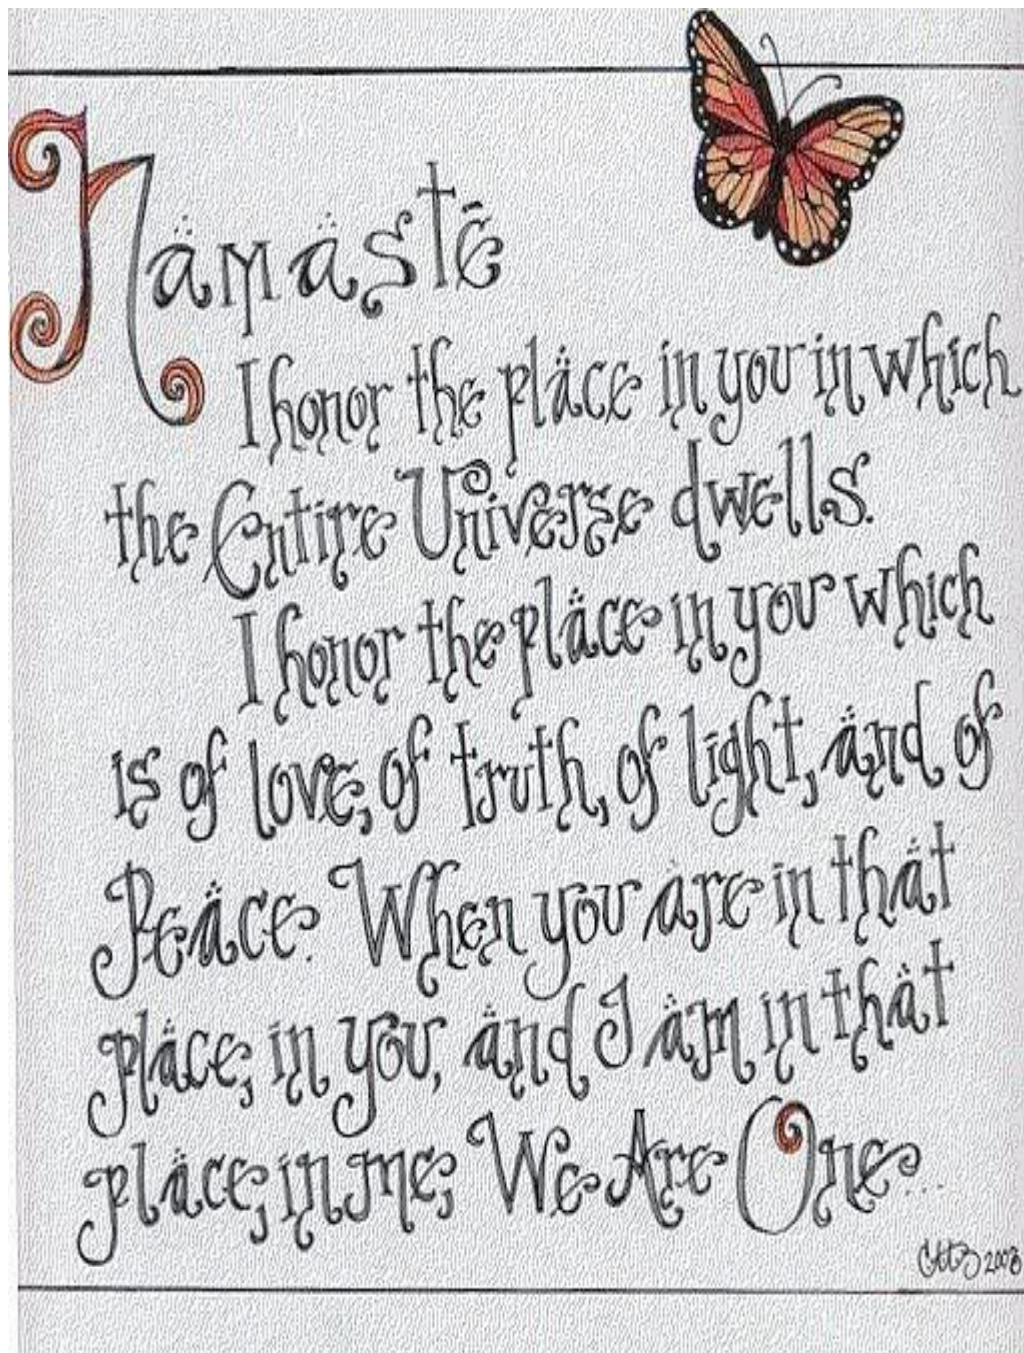 Namastē
I honor the place in you in which
the Entire Universe dwells.
I honor the place in you which
is of love, of truth, of light, and of
Peace. When you are in that
place, in you, and I am in that
place, in me, We Are One...
2008